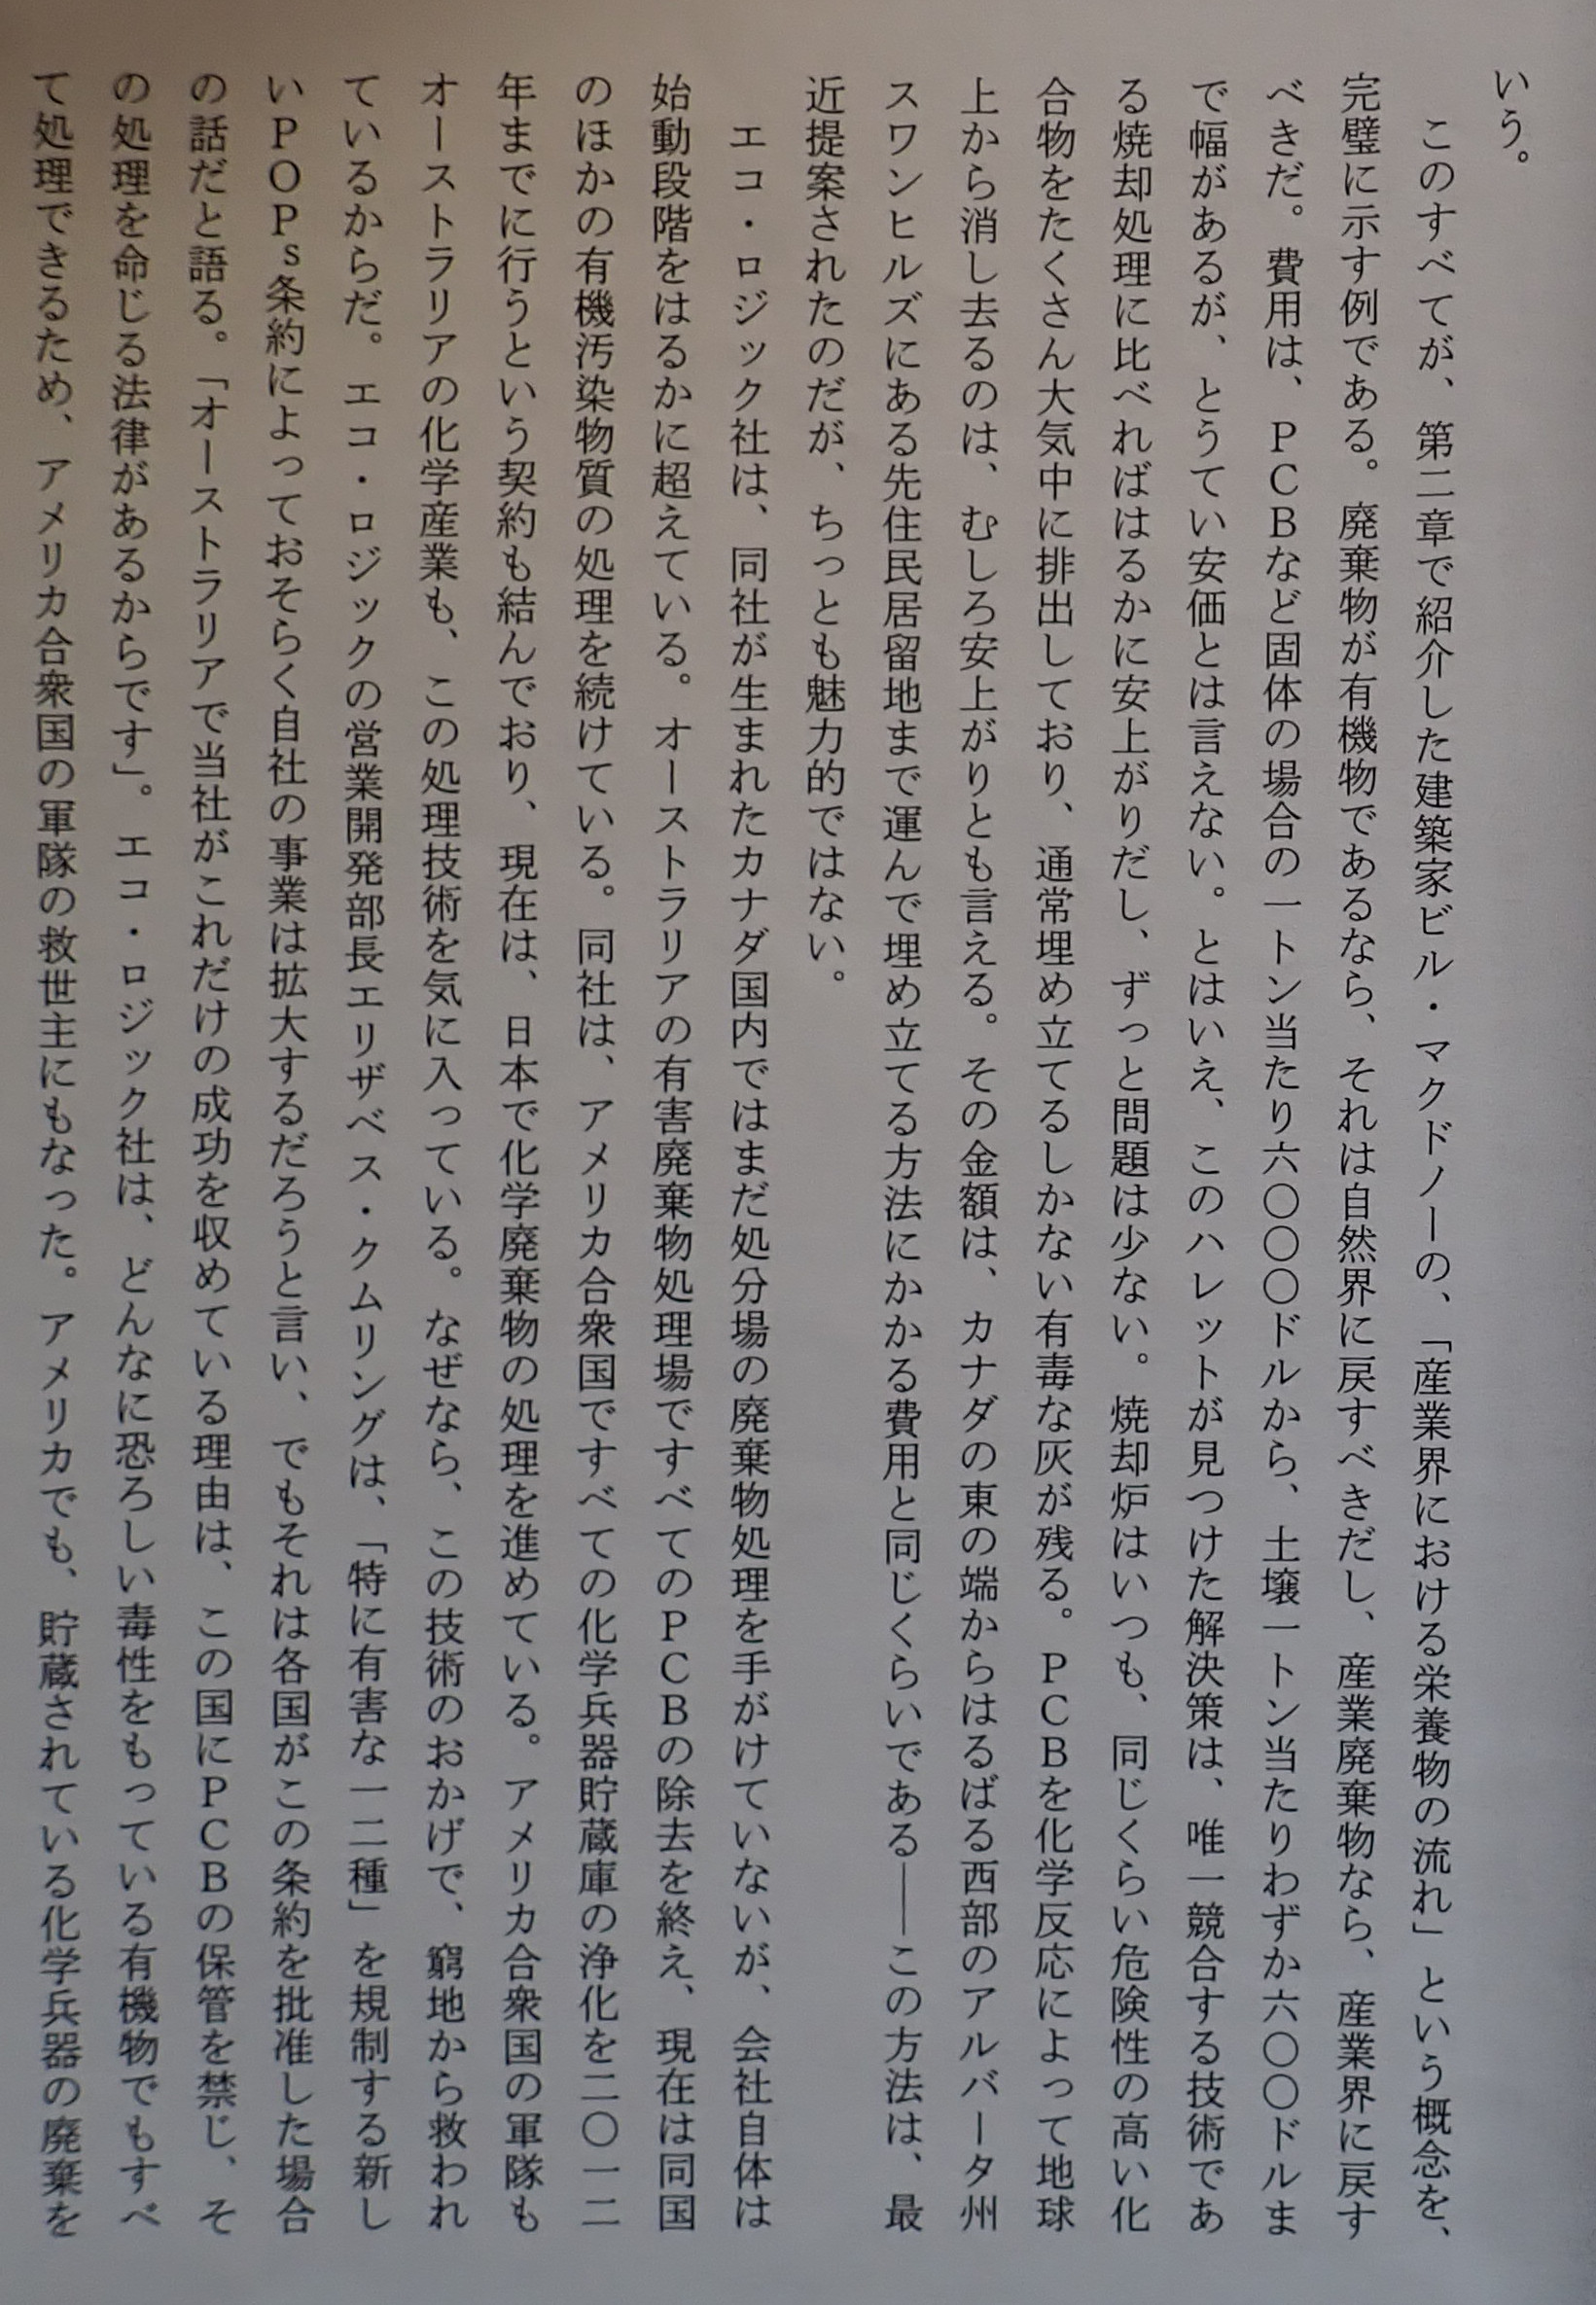 いう。
　このすべてが、第二章で紹介した建築家ビル・マクドノーの、「産業界における栄養物の流れ」という概念を、
完璧に示す例である。廃棄物が有機物であるなら、それは自然界に戻すべきだし、産業廃棄物なら、産業界に戻す
べきだ。費用は、ＰＣＢなど固体の場合の一トン当たり六〇〇〇ドルから、土壌一トン当たりわずか六〇〇ドルま
で幅があるが、とうてい安価とは言えない。とはいえ、このハレットが見つけた解決策は、唯一競合する技術であ
る焼却処理に比べればはるかに安上がりだし、ずっと問題は少ない。焼却炉はいつも、同じくらい危険性の高い化
合物をたくさん大気中に排出しており、通常埋め立てるしかない有毒な灰が残る。ＰＣＢを化学反応によって地球
上から消し去るのは、むしろ安上がりとも言える。その金額は、カナダの東の端からはるばる西部のアルバータ州
スワンヒルズにある先住民居留地まで運んで埋め立てる方法にかかる費用と同じくらいである――この方法は、最
近提案されたのだが、ちっとも魅力的ではない。
　エコ・ロジック社は、同社が生まれたカナダ国内ではまだ処分場の廃棄物処理を手がけていないが、会社自体は
始動段階をはるかに超えている。オーストラリアの有害廃棄物処理場ですべてのＰＣＢの除去を終え、現在は同国
のほかの有機汚染物質の処理を続けている。同社は、アメリカ合衆国ですべての化学兵器貯蔵庫の浄化を二〇一二
年までに行うという契約も結んでおり、現在は、日本で化学廃棄物の処理を進めている。アメリカ合衆国の軍隊も
オーストラリアの化学産業も、この処理技術を気に入っている。なぜなら、この技術のおかげで、窮地から救われ
ているからだ。エコ・ロジックの営業開発部長エリザベス・クムリングは、「特に有害な一二種」を規制する新し
いＰＯＰｓ条約によっておそらく自社の事業は拡大するだろうと言い、でもそれは各国がこの条約を批准した場合
の話だと語る。「オーストラリアで当社がこれだけの成功を収めている理由は、この国にＰＣＢの保管を禁じ、そ
の処理を命じる法律があるからです」。エコ・ロジック社は、どんなに恐ろしい毒性をもっている有機物でもすべ
て処理できるため、アメリカ合衆国の軍隊の救世主にもなった。アメリカでも、貯蔵されている化学兵器の廃棄を